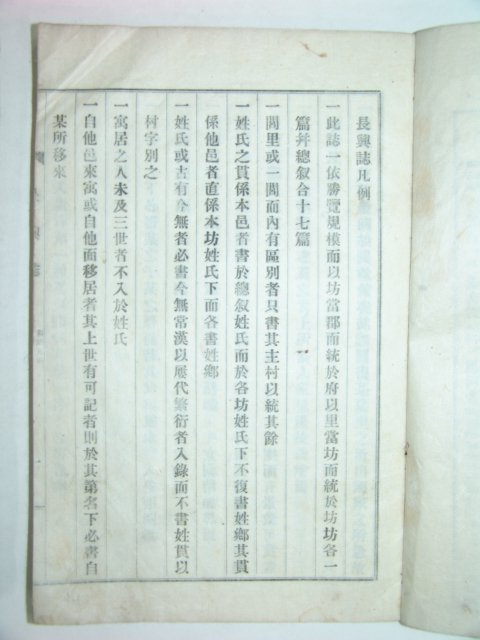 長興誌凡例
一此誌一依勝覽規模而以坊當郡而統於府以里當坊而統於坊坊各一
篇并總叙合十七篇
一閭里或一閭而內有區別者只書其主村以統其餘
一姓氏之貫係本邑者書於總叙姓氏而於各坊姓氏下不復書姓鄉其貫
係他邑者直係本坊姓氏下面各書姓鄉
一姓氏或古有今無者必書今無常漢以屢代繁衍者入錄而不書姓貫以
村字別之
一寓居之人未及三世者不入於姓氏
一自他邑來寓或自他面移居者其上世有可記者則於其第名下必書自
某所移來